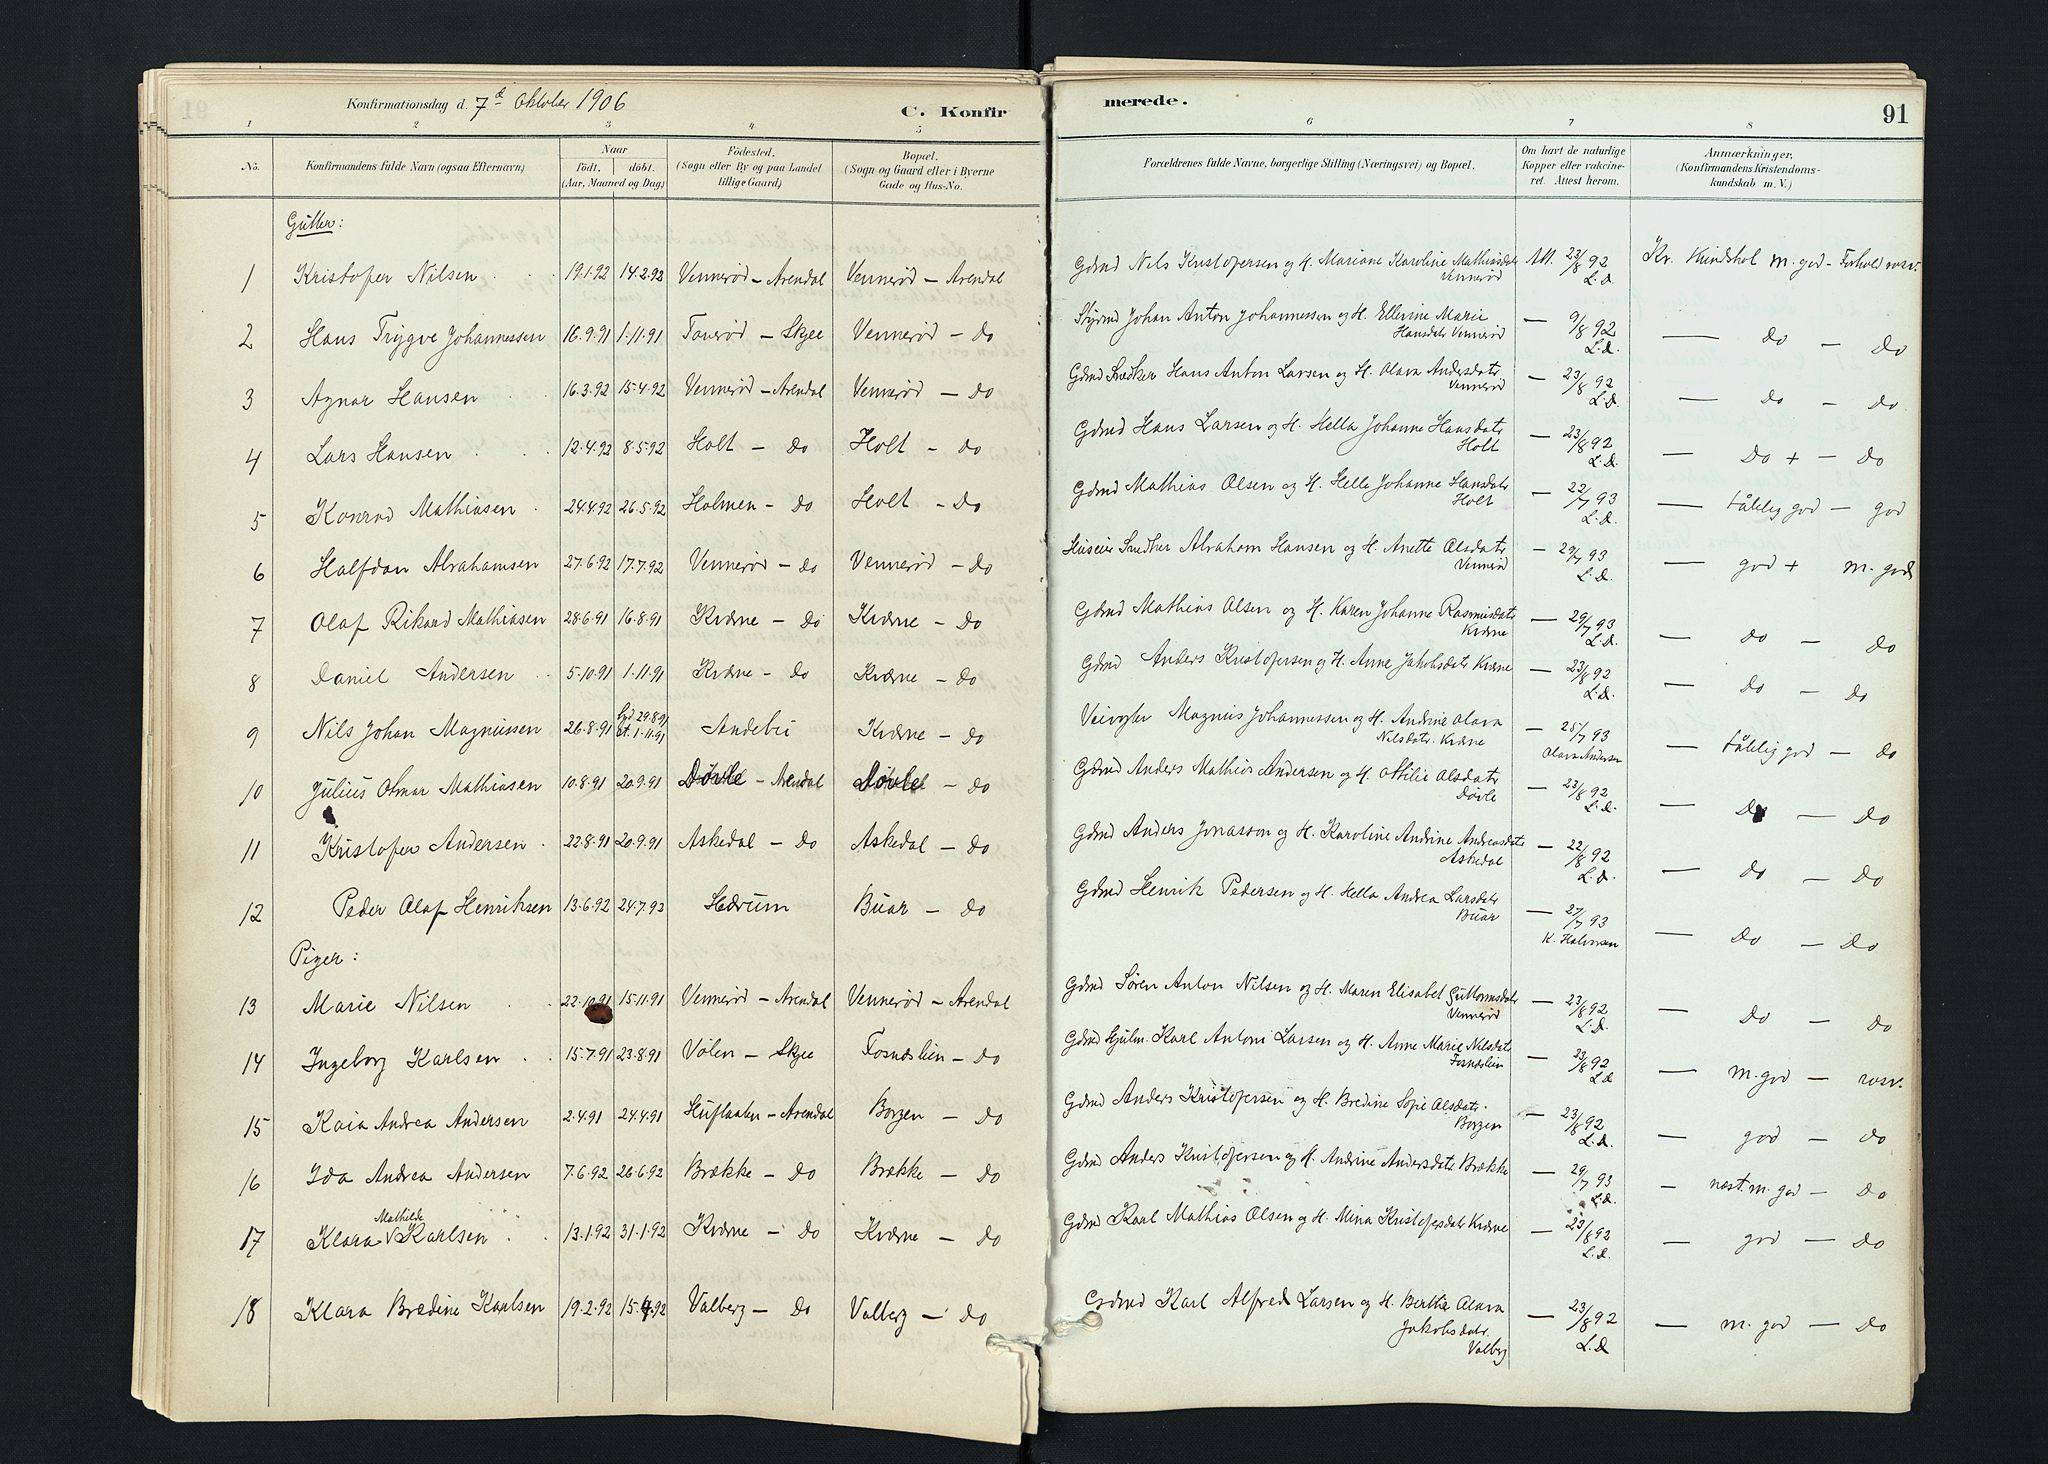 Konfirmationsdag d. 7de Oktober 1906
C. Konfirmerede.
91
1 2 3 4 5 6 7 8
No. Konfirmandens fulde Navn (ogsaa Efternavn) Naar födt. döbt. (Aar, Maaned og Dag) Födested. (Sogn eller By og paa Landet tillige Gaard) Bopæl. (Sogn og Gaard eller i Byerne Gade og Hus-No. Forældrenes fulde Navne, borgerlige Stilling (Næringsvei) og Bopæl. Om havt de naturlige Kopper eller vakcineret. Attest herom. Anmærkninger, (Konfirmandens Kristendomskundskab m. V.)
Gutter:
1 Kristofer Nilsen 19.1.92 14.2.92 Vennerød – Arendal Vennerød – Arendal Gdmd Nils Kristofersen og H. Mariane Karoline Mathisdatr Vennerød Att. 23/8 92 L.D. Kr. Kundskab m. god – Forhold rosv.
2 Hans Trygve Johannessen 16.9.91 1.11.91 Taverød – Skjee Vennerød – Do Johan Anton Johannessen og H. Ellevine Marie Hansdatr Vennerød — 9/8 92 L.D. — do – do
3 Agnar Hansen 16.3.92 15.4.92 Vennerød – Arendal Vennerød – Do Gdmd Snedker Hans Anton Larsen og H. Olava Andersdatr Vennerød — 23/8 92 L.D. — do – do
4 Lars Hansen 12.4.92 8.5.92 Holt – Do Holt – Do Gdmd Hans Larsen og H. Hella Johanne Hansdatr Holt — 23/8 92 L.D. — Do + – Do
5 Konrad Mathiasen 24.4.92 26.5.92 Holmen – Do Holt – Do Gdmd Mathias Olsen og H. Helle Johanne Hansdatr Holt — 22/7 93 L.D. — tålelig god – god
6 Halfdan Abrahamsen 27.6.92 17.7.92 Vennerød – Do Vennerød – Do Huseier Snedker Abraham Hansen og H. Anette Olsdatr Vennerød — 29/7 93 L.D. — god + m. god
7 Olaf Rikard Mathiasen 28.6.91 16.8.91 Kværne – Do Kværne – Do Gdmd Mathias Olsen og H. Karen Johanne Rasmusdatr Kværne — 29/7 93 L.D. — do – do
8 Daniel Andersen 5.10.91 1.11.91 Kværne – Do Kværne – Do Gdmd Anders Kristofersen og H. Anne Jakobsdatr Kværne — 23/8 92 L.D. — Do – do
9 Nils Johan Magnussen 26.8.91 29.8.91 1.11.91 Andebu Kværne – do Veivogter Magnus Johannessen og H. Andrine Olava Nilsdatr. Kværne — 25/7 93 Olava Andersen — tålelig god – do
10 Julius Otmar Mathiasen 10.8.91 20.9.91 Døvle – Arendal Døvle – do Gdmd Anders Mathias Andersen og H. Ottilie Olsdatr Døvle — 23/8 92 L.D. — Do – Do
11 Kristofer Andersen 22.8.91 20.9.91 Askedal – Do Askedal – Do Gdmd Anders Jonassen og H. Karoline Andrine Andreasdatr Askedal — 22/8 92 L.D. — do – Do
12 Peder Olaf Henriksen 13.6.92 24.7.92 Hedrum Buar – Do Gdmd Henrik Pedersen og H. Hella Andrea Larsdatr Buar — 27/7 93 K. Halvorsen — Do – Do
Piger:
13 Marie Nilsen 22.10.91 15.11.91 Vennerød – Arendal Vennerød – Arendal Gdmd Søren Anton Nilsen og H. Maren Elisabet Guttormsdatr Vennerød — 23/8 92 L.D. — Do – Do
14 Ingeborg Karlsen 15.7.91 23.8.91 Vølen – Skjee Fosnæslien – Do Gdmd Hjulm. Karl Antoni Larsen og H. Anne Marie Nilsdatr Fosnæslien — 23/8 92 L.D — m. god — rosv.
15 Kaia Andrea Andersen 2.4.91 24.4.91 – Arendal Borgen – Do Gdmd Anders Kristofersen og H. Bredine Sofie Olsdatr. Borgen — 23/8 92 L.D. — god – do
16 Ida Andrea Andersen 7.6.92 26.6.92 Brække – Do Brække – Do Gdmd Anders Kristofersen og H. Andrine Andersdatr Brække — 29/7 93 L.D. — næst. m. god – Do
17 Klara Mathilde Karlsen 13.1.92 31.1.92 Kværne – Do Kværne – Do Gdmd Karl Mathias Olsen og H. Mina Kristofersdatr Kværne — 23/8 92 L.D. — god – Do
18 Klara Bredine Karlsen 19.2.92 15.4.92 Valberg – Do Valberg – Do Gdmd Karl Alfred Larsen og H. Berthe Olava Jakobsdatr. Valberg — 23/8 92 L.D — m. god – Do